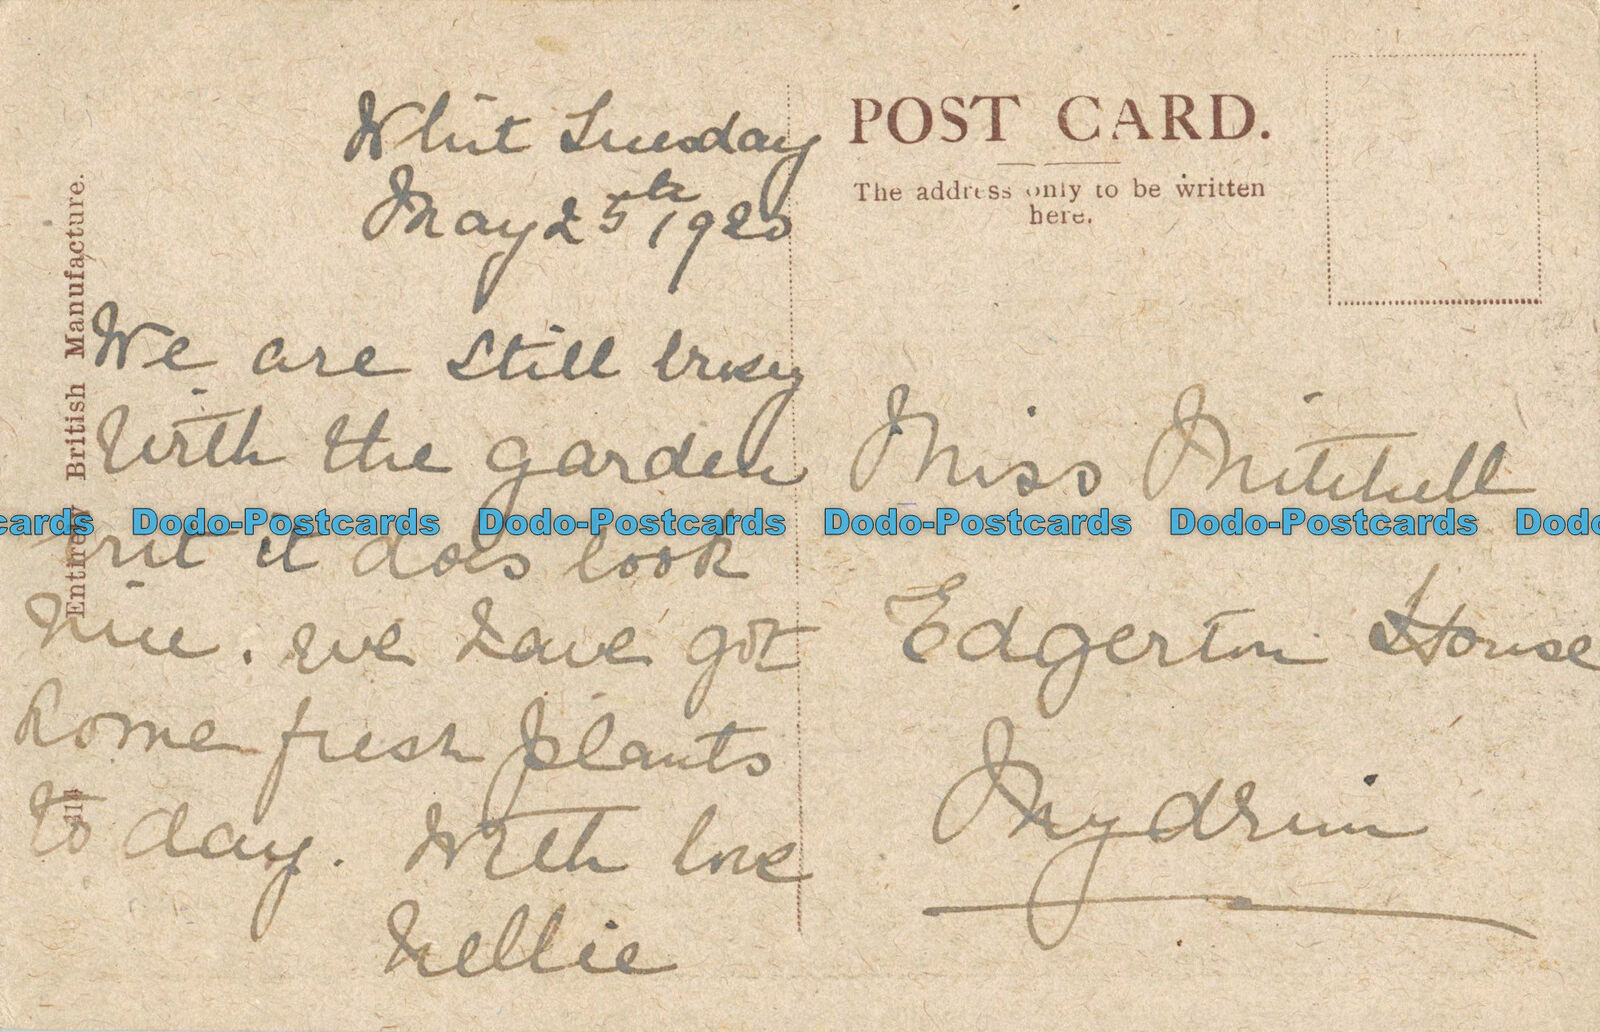 Whit Tuesday
May 25th 1920
We are still busy
with the garden
it does look
nice. we have got
some fresh plants
to day. With love
Nellie
POST CARD.
The address only to be written
here.
Miss Mitchell
Edgerton House
Mydrim
Entirely British Manufacture.
Dodo-Postcards Dodo-Postcards Dodo-Postcards Dodo-Postcards